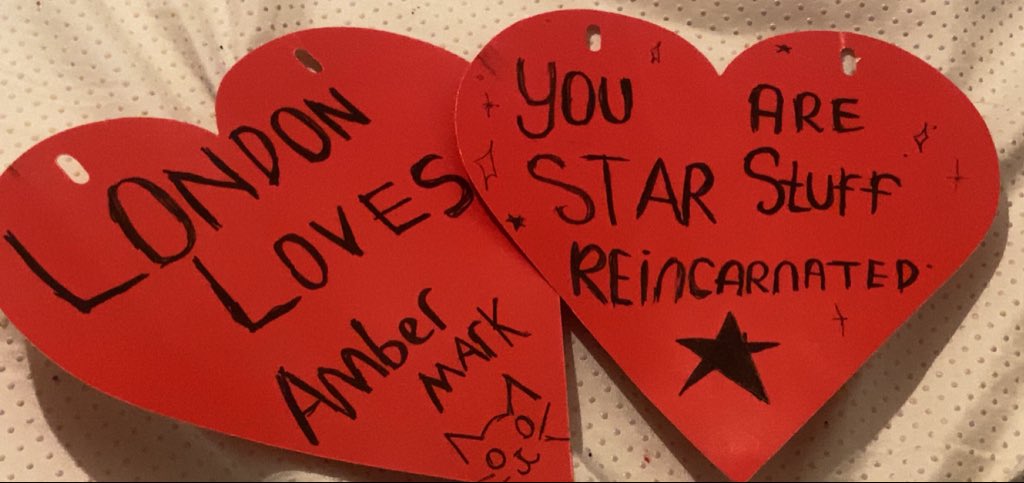 LONDON
LOVES
AMber
MARK
YOU ARE
STAR Stuff
REiNCARNATED